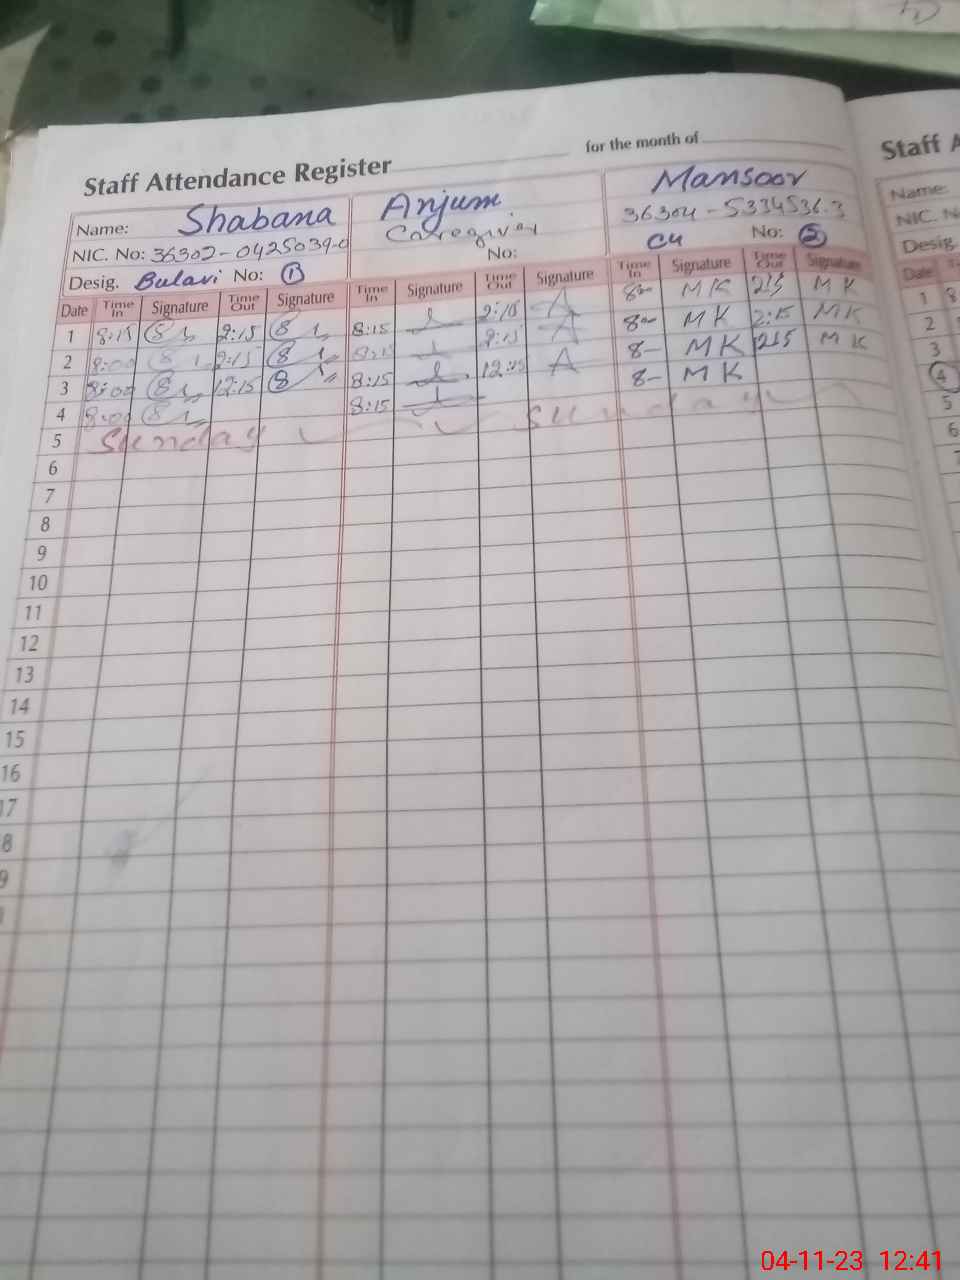 Staff Attendance Register for the month of
Name: Shabana Anjum Mansoor
NIC. No: 36302-0425039-0 Caregiver 36304-5334536.3
Desig. Bulavi No: 1 No: C4 No: 2
Date Time In Signature Time Out Signature Time In Signature Time Out Signature Time In Signature Time Out Signature
1 8:15 2:15 8:15 2:15 A 8- MK 215 MK
2 8:00 2:15 8:15 2:15 A 8- MK 2:15 MK
3 8:00 12:15 8:15 12:15 A 8- MK 1215 MK
4 8:00 8:15 8- MK
5 Sunday Sunday
6
7
8
9
10
11
12
13
14
15
16
17
8
9
Staff A
Name:
NIC. N
Desig.
Date
1 8
2
3
4
5
6
7
04-11-23 12:41